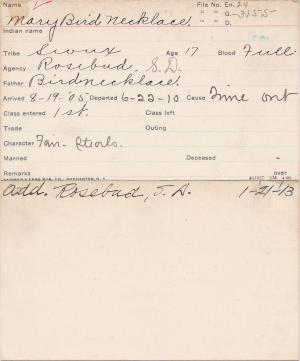 Name File No. En. 24
Mary Bird Necklace. " " G.-3155
Indian name " " D.
Tribe Sioux Age 17 Blood Full
Agency Rosebud, S.D.
Father Birdnecklace.
Arrived 8-19-'05 Departed 6-22-10 Cause Time out
Class entered 1st. Class left
Trade Outing
Character Fair.
Married Deceased -
Remarks OVER
Add. Rosebud, S.D. 1-21-13